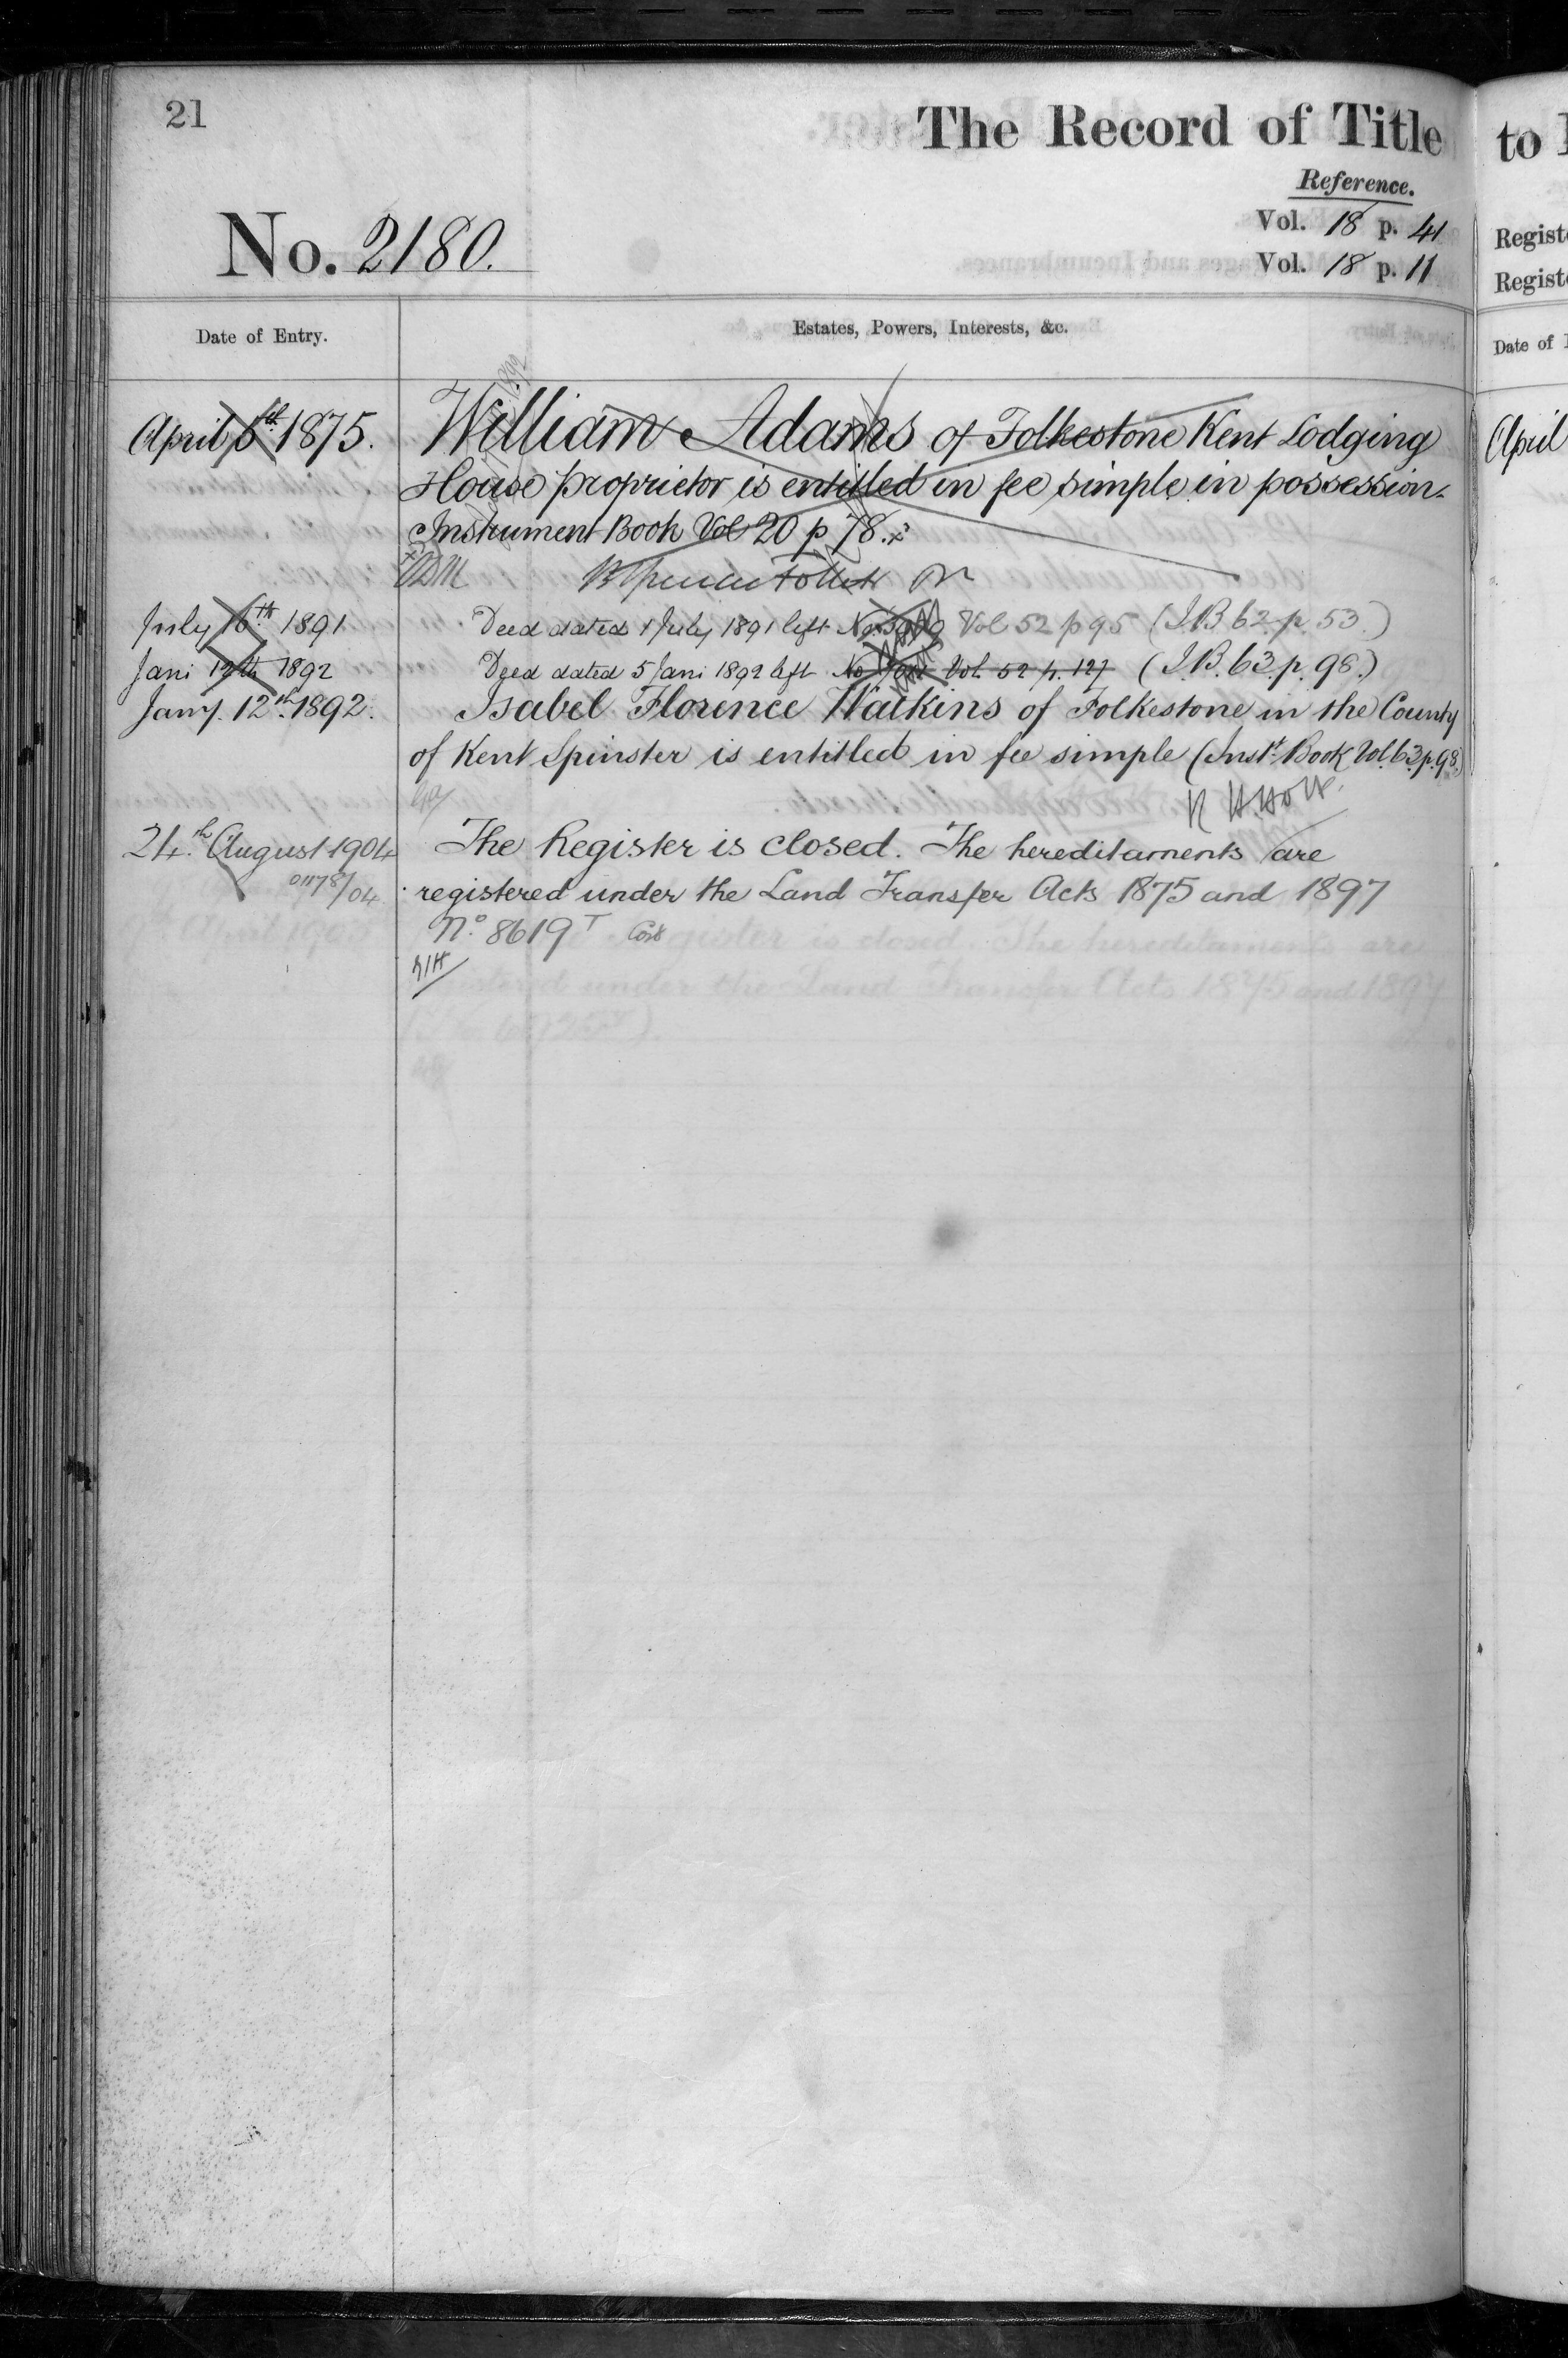 21
The Record of Title
to
Reference.
Vol. 18 p. 41
Vol. 18 p. 11
No. 2180.
Date of Entry.
Estates, Powers, Interests, &c.
April 6th 1875.
William Adams of Folkestone Kent Lodging
House proprietor is entitled in fee simple in possession.
Instrument Book Vol 20 p 78.
July 16th 1891
Deed dated 1 July 1891 left Vol 52 p 95 (I.B. 62. p. 53.)
Jan: 12th 1892
Deed dated 5 Jan: 1892 left No Vol. 52 p. 127 (I.B. 63. p. 98.)
Jany. 12th 1892.
Isabel Florence Watkins of Folkestone in the County
of Kent Spinster is entitled in fee simple (Inst. Book Vol. 63. p. 98.)
R H Holt
24th August 1904
The Register is closed. The hereditaments are
01178/04
registered under the Land Transfer Acts 1875 and 1897
No. 8619 T
Regist
Regist
Date of
April